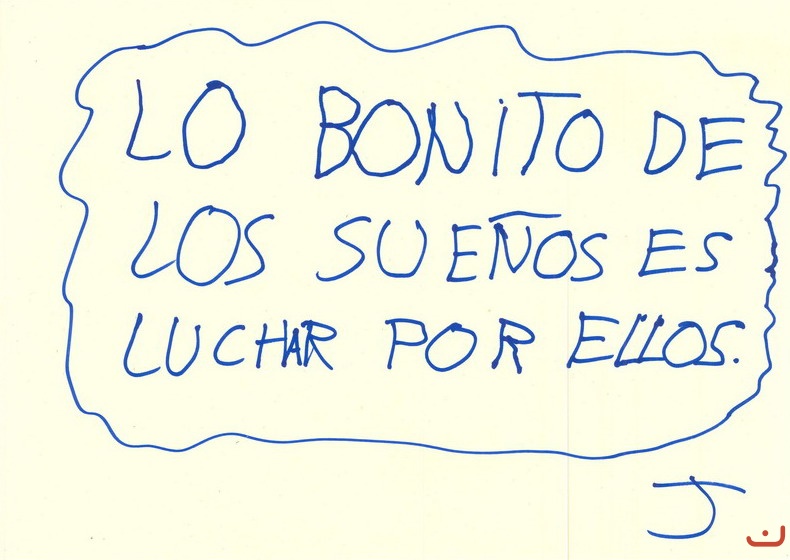 LO BONITO DE
LOS SUEÑOS ES
LUCHAR POR ELLOS.
J